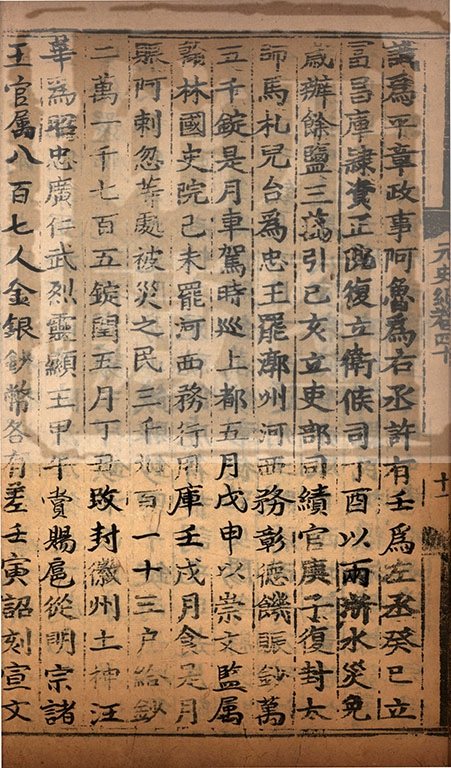 元史紀卷四十
十一
識為平章政事阿魯為右丞許有壬為左丞癸巳立
富昌庫隸資正院復立衛候司丁酉以兩浙水災免
歲辦餘鹽三萬引己亥立吏部司績官庚子復封太
師馬札兒台為忠王罷漷州河西務彰德饑賑鈔萬
五千錠是月車駕時巡上都五月戊申以崇文監属
翰林國史院己未罷河西務行用庫壬戌月食是月
賑阿剌忽等處被災之民三千九百一十三户給鈔
二萬一千七百五錠閏五月丁丑改封徽州土神汪
華為昭忠廣仁武烈靈顯王甲午賞賜扈從明宗諸
王官属八百七人金銀鈔幣各有差壬寅詔刻宣文